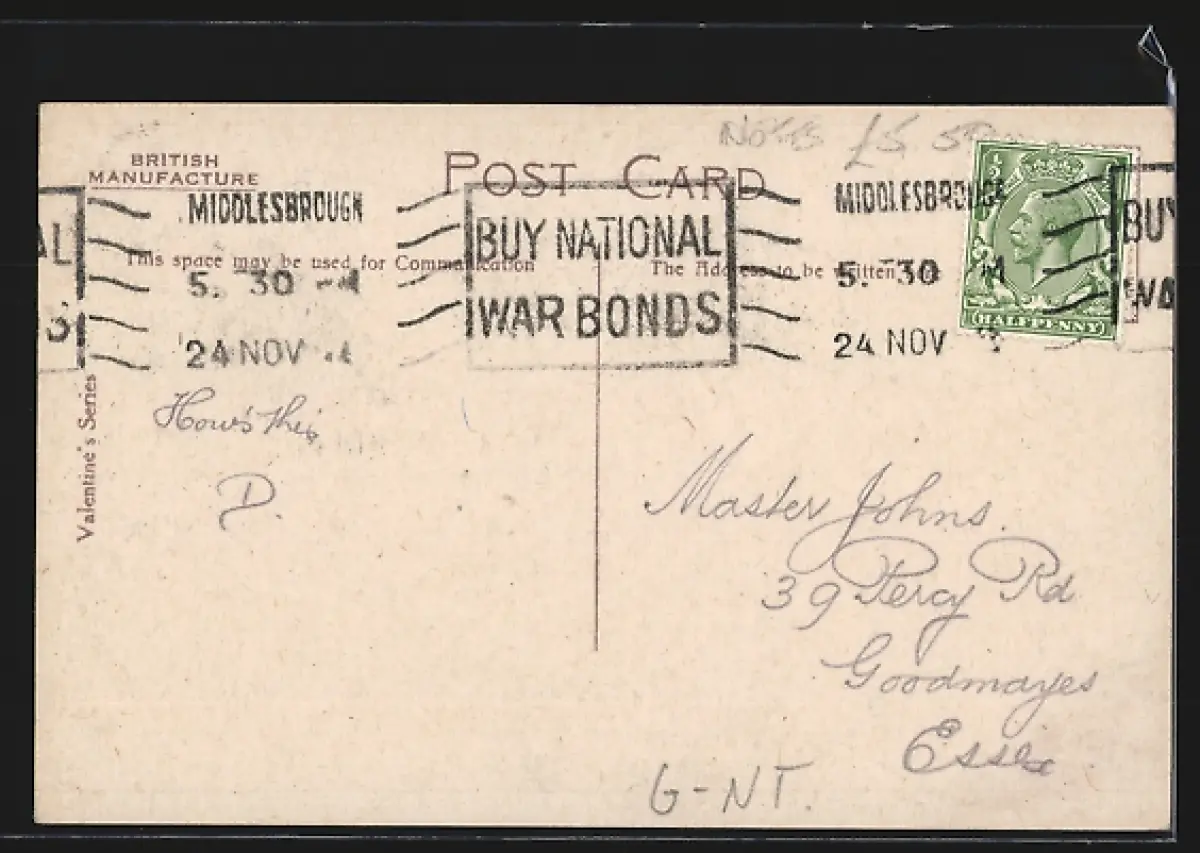 Notts £5
BRITISH
MANUFACTURE
POST CARD
MIDDLESBROUGH
5. 30
24 NOV
AL
S
BUY NATIONAL
WAR BONDS
MIDDLESBROUGH
5. 30 M
24 NOV
BUY
WA
HALFPENNY
This space may be used for Communication
The Address to be written
Valentine's Series
How's this.
D.
Master Johns.
39 Percy Rd
Goodmayes
Essex
G-NT.